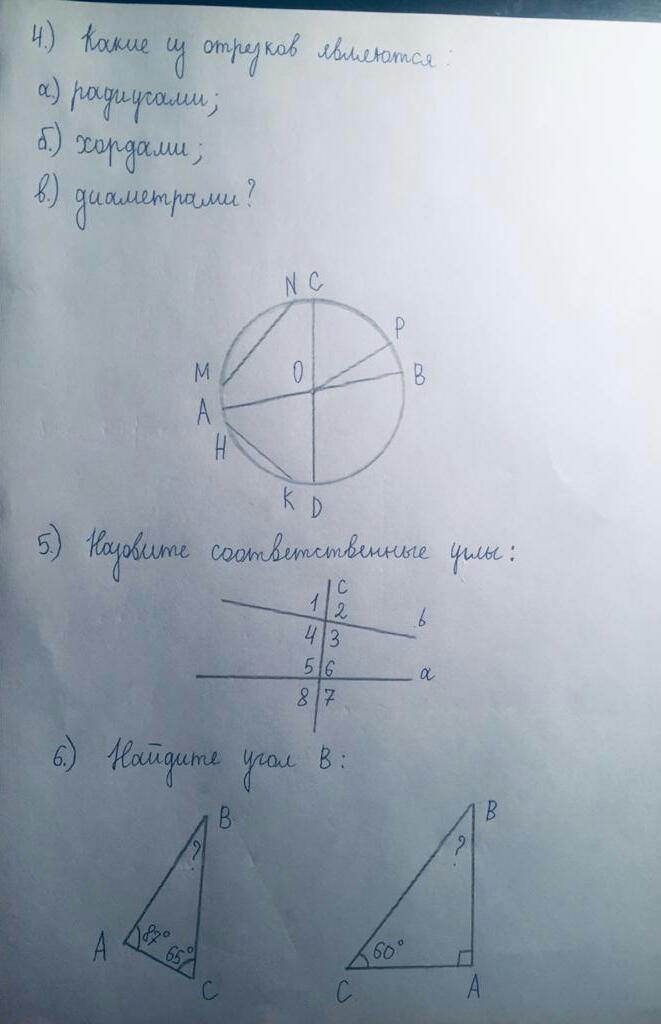 4.) Какие из отрезков являются:
а.) радиусами;
б.) хордами;
в.) диаметрами?
N C
P
M O B
A
H
K D
5.) Назовите соответственные углы:
c
1 2 b
4 3
5 6 a
8 7
6.) Найдите угол В:
B B
? ?
A 87° 65° 60°
C C A